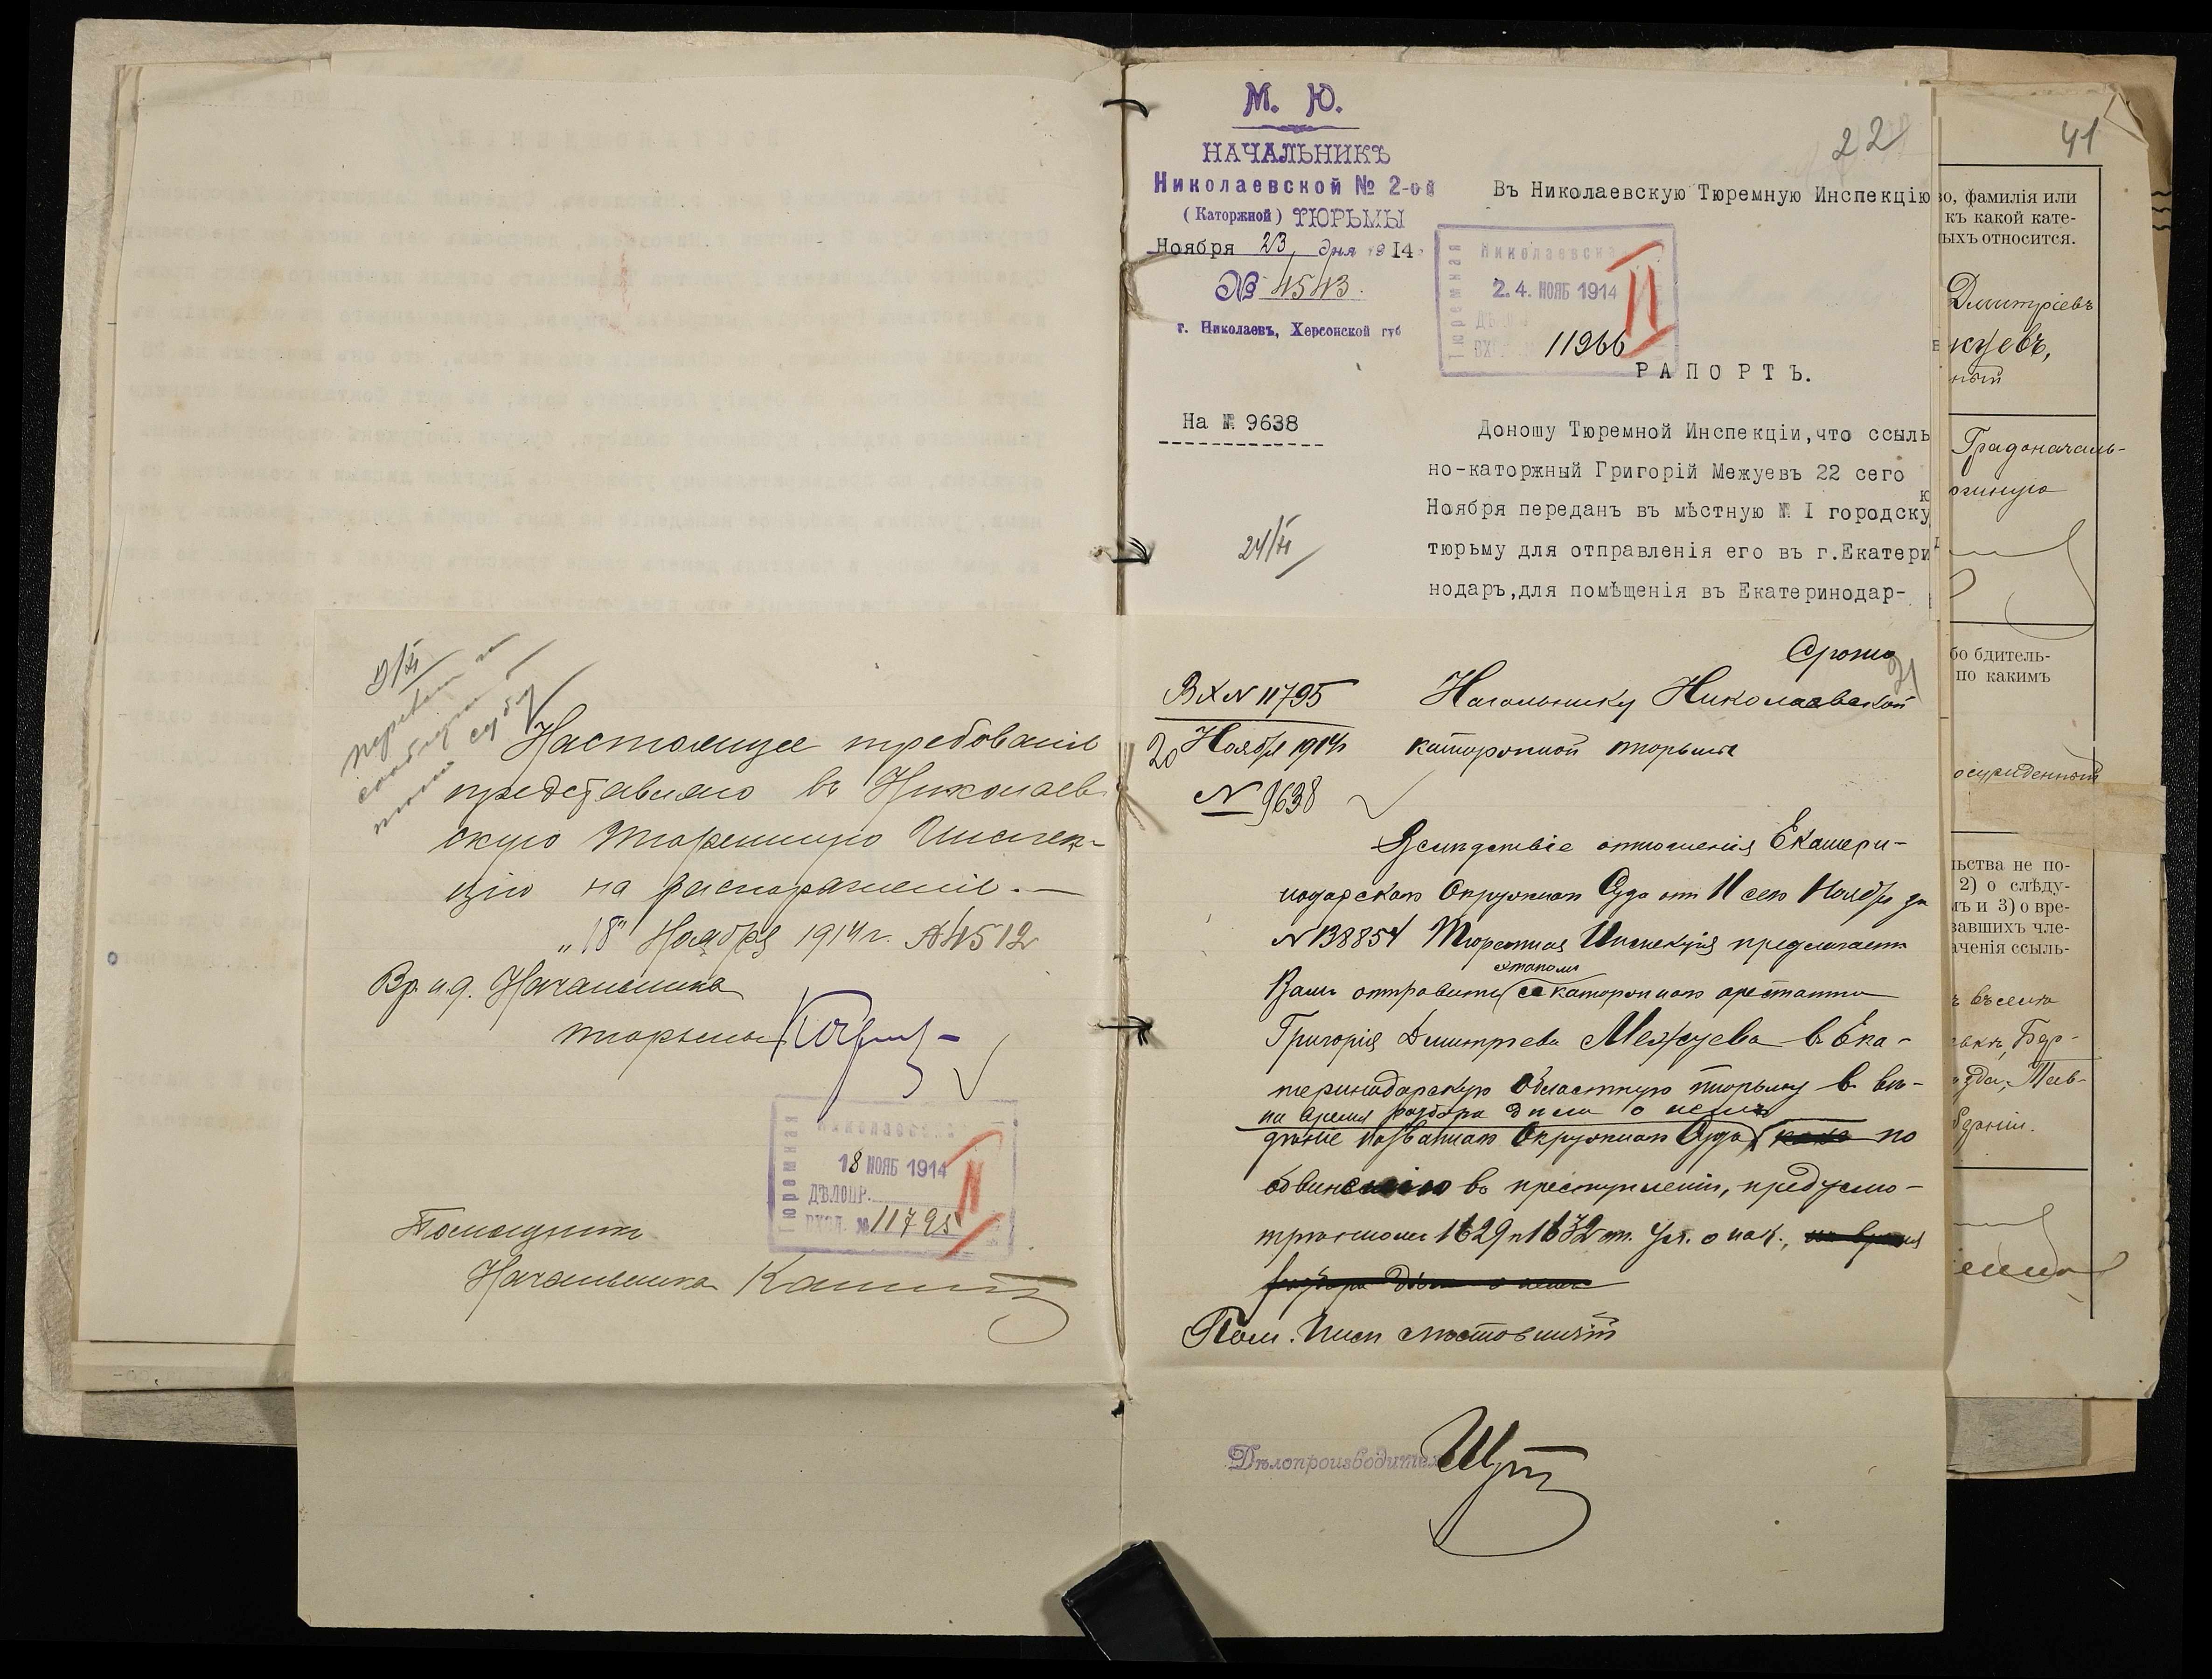 М. Ю.
НАЧАЛЬНИКЪ
Николаевской № 2-ой
(Каторжной) ТЮРЬМЫ
Ноября 23 дня 1914
№ 4543.
г. Николаевъ, Херсонской губ
На № 9638
24/XI
22
Въ Николаевскую Тюремную Инспекцію
Николаевска
Тюремная
24. НОЯБ 1914
II
11966
РАПОРТЪ.
Доношу Тюремной Инспекціи, что ссыль
но-каторжный Григорій Межуевъ 22 сего
Ноября переданъ въ мѣстную № I городскую
тюрьму для отправленія его въ г.Екатери
нодаръ,для помѣщенія въ Екатеринодар-
Настоящее требованіе
представляю въ Николаев
скую Тюремную Инспек-
цію на распоряженіе.—
"18" Ноября 1914 г. № 4512
Вр. и д. Начальника
тюрьмы
Николаевска
Тюремная
18 НОЯБ 1914
II
ДѢЛОПР.
ВХОД. № 11795
Помощникъ
Начальника
Срочно
21
Вх N 11795
20 Ноября 1914
N 9638
Начальнику Николаевской
каторжной тюрьмы
Вслѣдствіе отношенія Екатери-
нодарскаго Окружнаго Суда отъ 11 сего Ноября за
N 138854 Тюремная Инспекція предлагаетъ
этапомъ
Вамъ отправить сс каторжнаго арестанта
Григорія Дмитріева Межуева въ Ека-
теринодарскую Областную тюрьму въ вѣ-
на время разбора дѣла о немъ
дѣніе названнаго Окружнаго Суда по
обвиненію въ преступленіи, предусмо-
трѣнномъ 1629 и 1632 ст. Ул. о нак., на время
разбора дѣла о немъ
Пом. Инсп
Дѣлопроизводитель
41
во, фамилія или
къ какой кате-
ныхъ относится.
Дмитріевъ
жуевъ,
ный
Градоначаль-
бо бдитель-
по какимъ
осужденный
льства не по-
2) о слѣду-
мъ и 3) о вре-
вавшихъ чле-
аченія ссыль-
Бер-
ѣзда, Тав-
берніи.